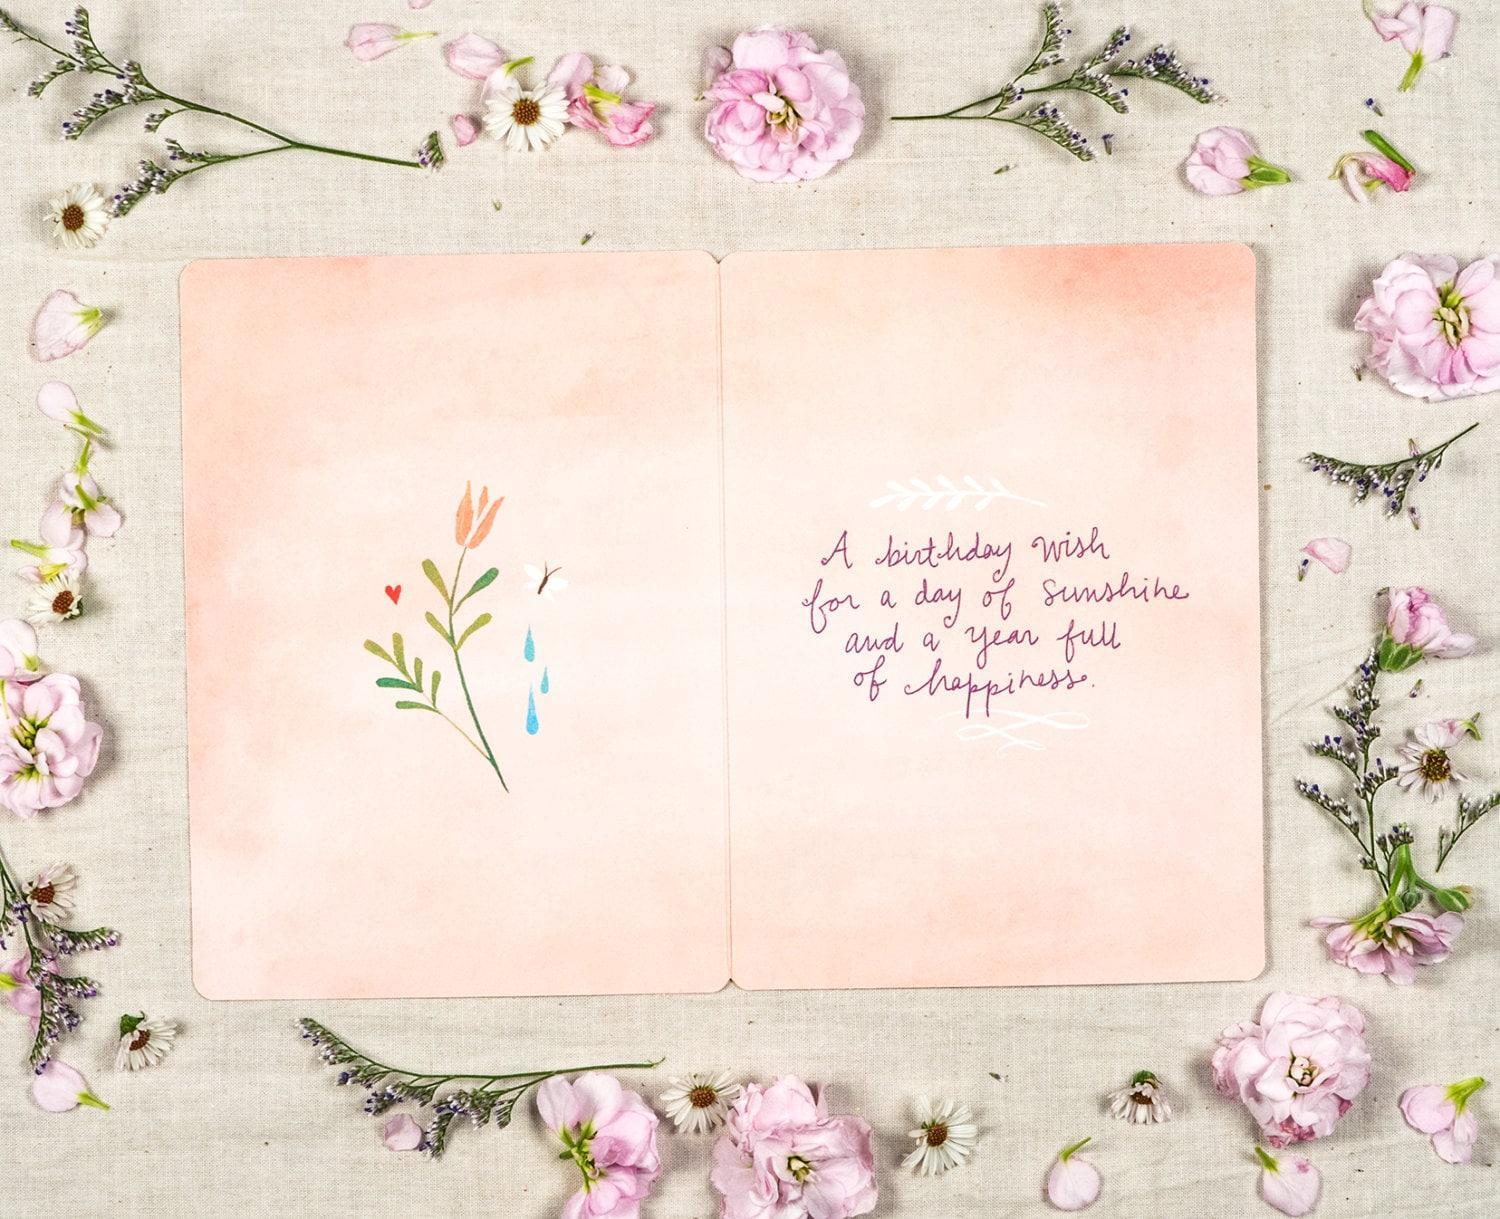 A birthday wish
for a day of sunshine
and a year full
of happiness.